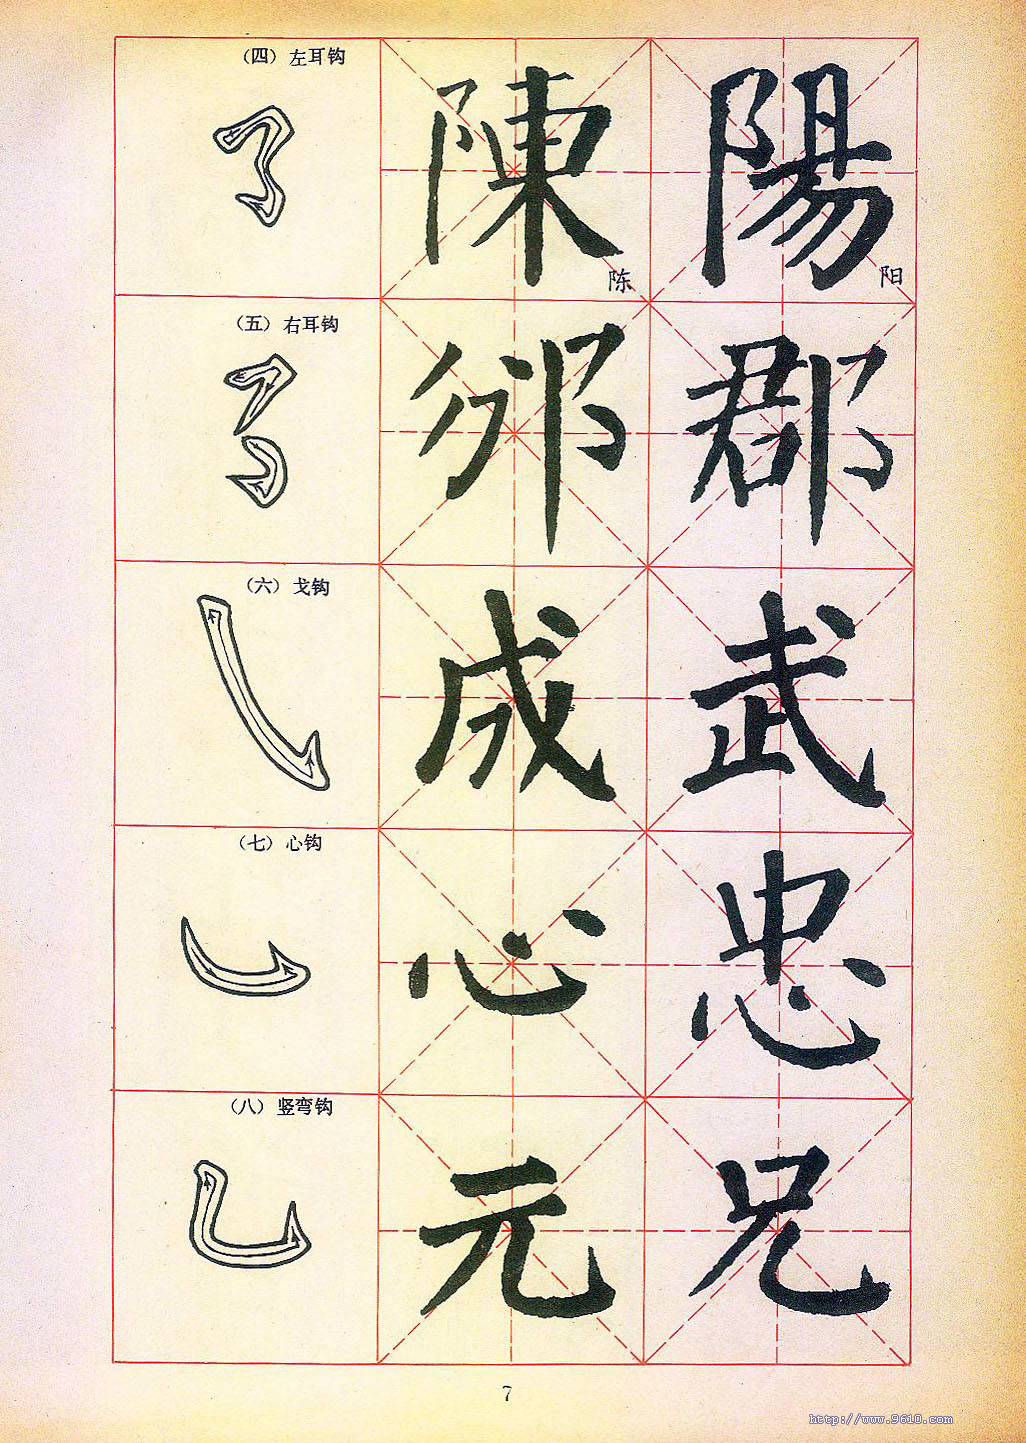 （四）左耳钩
陳 陈 陽 阳
（五）右耳钩
邠 郡
（六）戈钩
成 武
（七）心钩
心 忠
（八）竖弯钩
元 兄
7
http://www.9610.com